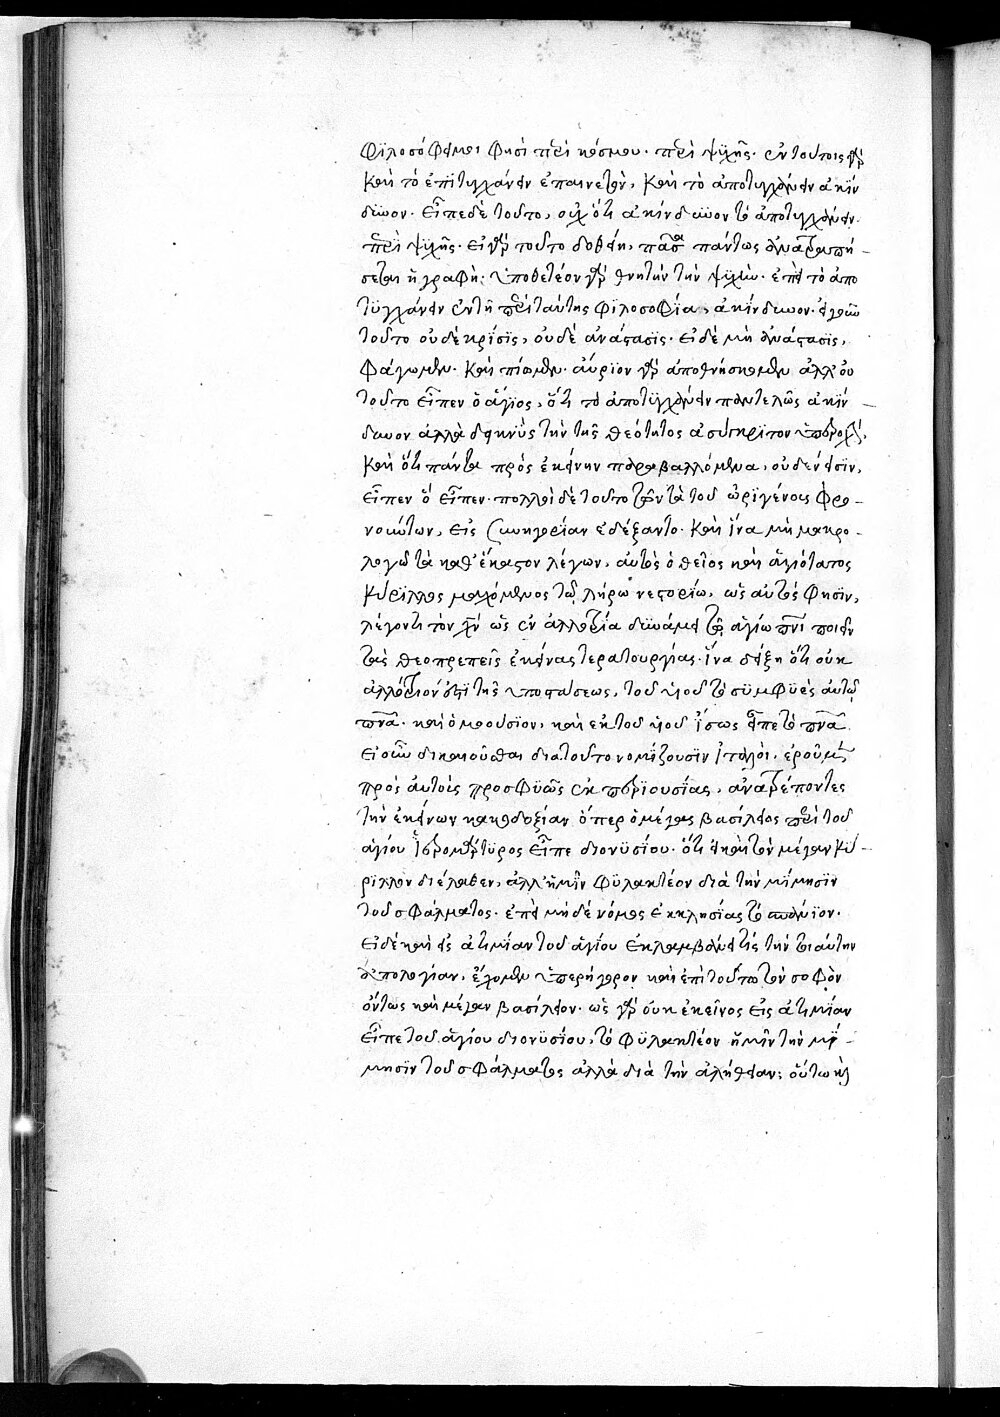 Φϊλοσόφει μοι φησὶ περὶ κόσμου· περὶ ψϋχῆς· ἐν τούτοις γὰρ
καὶ τὸ ἐπϊτυγχάνειν ἐπαινετὸν, καὶ τὸ ἀποτυγχάνειν ἀκίν
δϋνον· εἶπε δὲ τοῦτο, οὐχ ὅτι ἀκίνδϋνον τὸ ἀποτυγχάνειν
περὶ ψϋχῆς· εἰ γὰρ τοῦτο δοθείη, πᾶσα πάντως ἀνατραπή-
σεται ἡ γραφή· ὑποθετέον γὰρ θνητὴν τὴν ψϋχὴν· ἐπεὶ τὸ ἀπο
τϋγχάνειν ἐν τῆ περὶ ταύτης φϊλοσοφία, ἀκίνδυνον·
τοῦτο οὐδὲ κρίσϊς, οὐδὲ ἀνάστασϊς· εἰ δὲ μὴ ἀνάστασϊς,
φάγωμεν· καὶ πίωμεν· αὔριον γὰρ ἀποθνήσκομεν ἀλλ' οὐ
τοῦτο εἶπεν ὁ ἅγϊος, ὅτι τὸ ἀποτϋγχάνειν παντελῶς ἀκίν-
δυνον ἀλλὰ δεικνὺς τὴν τῆς θεότητος ἀσύγκρϊτον ὑπεροχὴν,
καὶ ὅτι πάντα πρὸς ἐκείνην παραβαλλόμενα, οὐδέν εἰσϊν,
εἶπεν ὃ εἶπεν· πολλοὶ δὲ τοῦτο τῶν τὰ τοῦ ὠρϊγένους φρο-
νούντων, εἰς συνηγορίαν ἐδέξαντο· καὶ ἵνα μὴ μακρο-
λογῶ τὰ καθ' ἕκαστον λέγων, αὐτὸς ὁ θεῖος καὶ ἁγιότατος
κύρϊλλος μαχόμενος τῶ λήρω νεστορίω, ὡς αὐτός φησϊν,
λέγοντι τὸν χν ὡς ἐν ἀλλοτρία δϋνάμει τῶ ἁγίω πνι ποιεῖν
τὰς θεοπρεπεῖς ἐκείνας τερατουργίας· ἵνα δείξη ὅτι οὐκ
ἀλλότριον ἐστϊ τῆς ὑποστάσεως, τοῦ υἱοῦ τὸ συμφϋὲς αὐτῶ
πνα· καὶ ὁμοούσϊον, καὶ ἐκ τοῦ υἱοῦ ἴσως εἶπε τὸ πνα
εἰ οὖν δικαιοῦσθαι διὰ τοῦτο νομίζουσϊν ἰταλοὶ, ἐροῦμεν
πρὸς αὐτοὺς προσφϋῶς ἐκ περϊουσίας, ἀνατρέποντες
τὴν ἐκείνων κακοδοξίαν ὅπερ ὁ μέγας βασίλειος περὶ τοῦ
ἁγίου ἱερομάρτϋρος εἶπε διονϋσίου· ὅτι εἰ καὶ τὸν μέγαν κύ-
ρϊλλον διέλαθεν, ἀλλ' ἡμῖν φϋλακτέον διὰ τὴν μίμησϊν
τοῦ σφάλματος· ἐπεὶ μὴ δὲ νόμος ἐκκλησίας τὸ σπάνϊον·
εἰ δὲ καὶ εἰς ἀτιμίαν τοῦ ἁγίου ἐκλαμβάνει τὶς τὴν τοιαύτην
ἀπολογίαν, ἔχομεν ὑπερήγορον καὶ ἐπὶ τούτω τὸν σοφὸν
ὄντως καὶ μέγαν βασίλειον· ὡς γὰρ οὐκ ἐκεῖνος εἰς ἀτιμίαν
εἶπε τοῦ ἁγίου διονϋσίου, τὸ φϋλακτέον ἡμῖν τὴν μί-
μησϊν τοῦ σφάλματος ἀλλὰ διὰ τὴν ἀλήθειαν; οὕτω καὶ